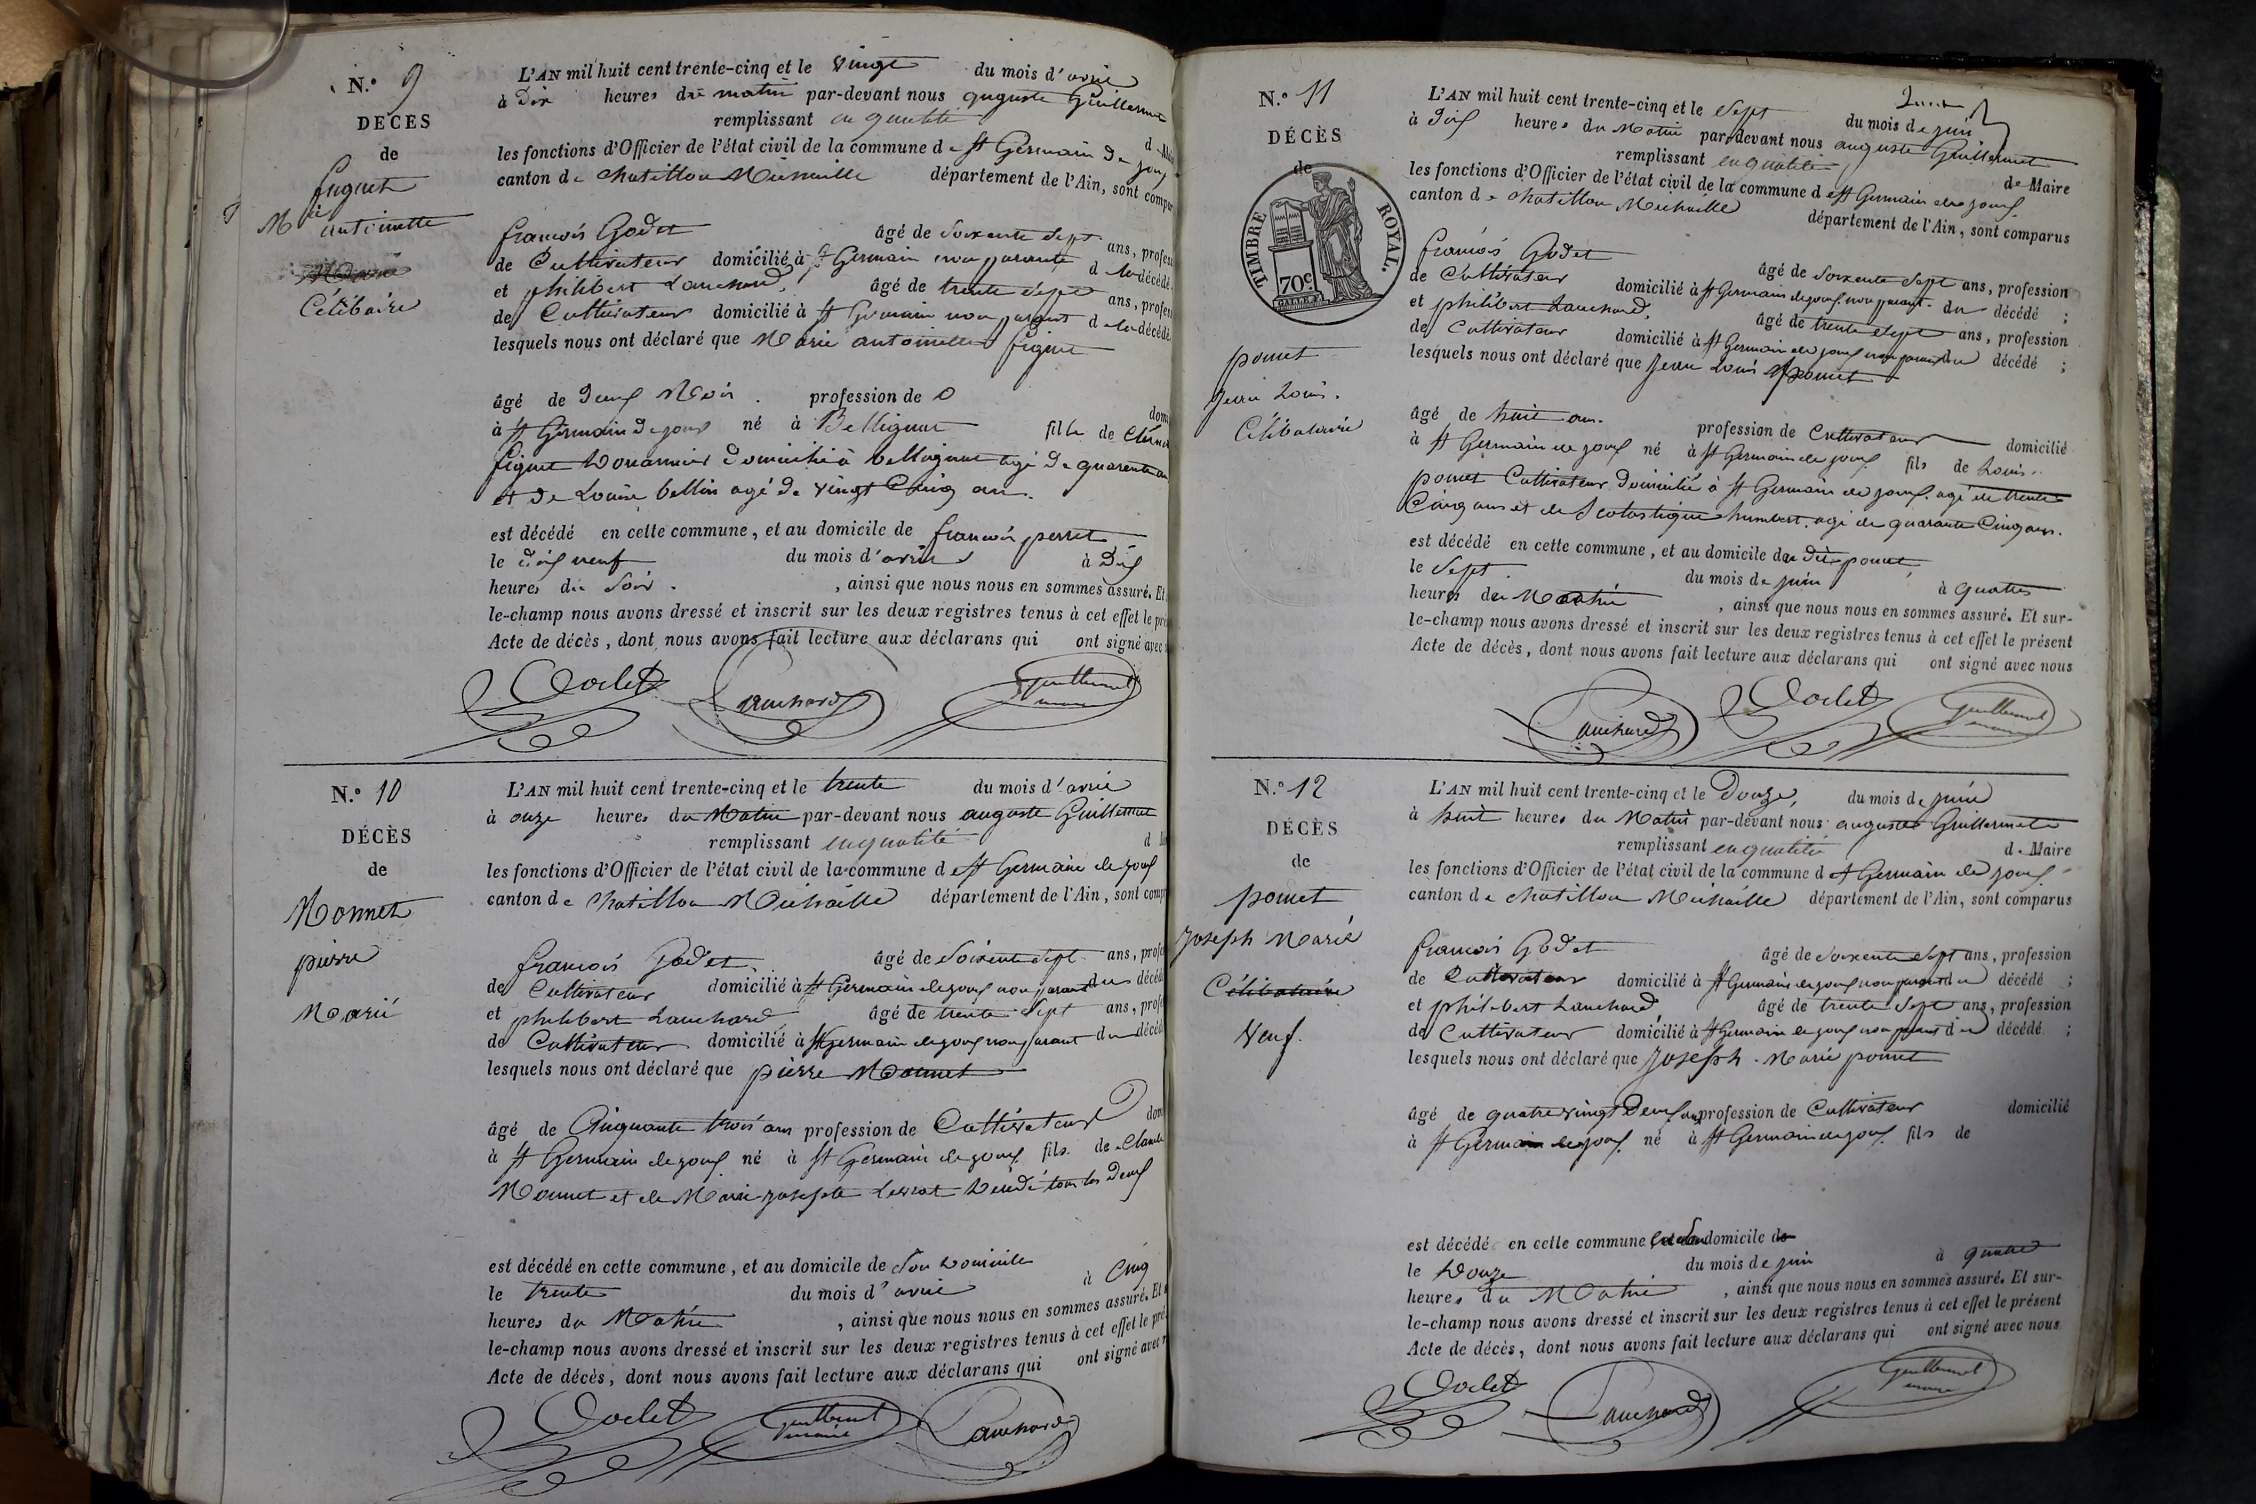 N.° 9
DÉCÈS
de
figuet
M.ie antoinette
Célibaire
L'AN mil huit cent trente-cinq et le vingt du mois d'avril
à Dix heures du matin par-devant nous auguste Guillermet
remplissant en qualité d
les fonctions d'Officier de l'état civil de la commune de St Germain de joux
canton de chatillon Michaille département de l'Ain, sont compar
francois Godet âgé de soixente sept ans, profess
de Cultivateur domicilié à St Germain non parent d la décédé
et philibert Lanchard, âgé de trente sept ans, profess
de Cultivateur domicilié à St Germain non parent d la décédé
lesquels nous ont déclaré que Marie antoinette figuet
âgé de Deux Mois. profession de 0 dom
à St Germain de joux né à Bellignat fille de
figuet Douannier Domicilié à bellignat agé de quarente an
et de Louise bellin agé de vingt Cinq an.
est décédé en cette commune, et au domicile de francois perret
le dix neuf du mois d'avril à Dix
heures du Soir. , ainsi que nous nous en sommes assuré. Et
le-champ nous avons dressé et inscrit sur les deux registres tenus à cet effet le pré
Acte de décès, dont nous avons fait lecture aux déclarans qui ont signé avec
Godet Lanchard Guillermet maire
N.° 10
DÉCÈS
de
Monnet
pierre
Marié
L'AN mil huit cent trente-cinq et le trente du mois d'avril
à onze heures du Matin par-devant nous auguste Guillermet
remplissant en qualité d
les fonctions d'Officier de l'état civil de la commune de St Germain de joux
canton de chatillon Michaille département de l'Ain, sont comp
francois Godet, âgé de Soixente sept ans, profe
de Cultivateur domicilié à St Germain de joux non parent du décéd
et philibert Lanchard âgé de trente sept ans, profe
de Cultivateur domicilié à St Germain de joux non parent du décéd
lesquels nous ont déclaré que pierre Monnet
âgé de Cinquante trois ans profession de Cultivateur dom
à St Germain de joux né à St Germain de joux fils de Claude
Monnet et de Marie josephte Décédé tous les Deux
est décédé en cette commune, et au domicile de Son Domicile
le trente du mois d'avril à Cinq
heures du Matin , ainsi que nous nous en sommes assuré. Et
le-champ nous avons dressé et inscrit sur les deux registres tenus à cet effet le pré
Acte de décès, dont nous avons fait lecture aux déclarans qui ont signé avec
Godet Guillermet maire Lanchard
N.° 11
DÉCÈS
de
TIMBRE ROYAL.
70c.
pomet
jean Louis.
Célibatairie
L'AN mil huit cent trente-cinq et le Sept du mois de juin
à dix heures du Matin par-devant nous auguste Guillermet
remplissant en qualité de Maire
les fonctions d'Officier de l'état civil de la commune de St Germain de joux
canton de chatillon Michaille département de l'Ain, sont comparus
francois Godet âgé de Soixente Sept ans, profession
de Cultivateur domicilié à St Germain de joux non parent du décédé ;
et philibert Lanchard, âgé de trente Sept ans, profession
de Cultivateur domicilié à St Germain de joux non parent du décédé ;
lesquels nous ont déclaré que jean Louis pomet
âgé de huit an. profession de Cultivateur domicilié
à St Germain de joux né à St Germain de joux fils de Louis
pomet Cultivateur Domicilié à St Germain de joux agé de trente
Cinq ans et de Scolastique humbert agé de quarante Cinq ans.
est décédé en cette commune, et au domicile du dit pomet,
le Sept du mois de juin à quatres
heures du Matin , ainsi que nous nous en sommes assuré. Et sur-
le-champ nous avons dressé et inscrit sur les deux registres tenus à cet effet le présent
Acte de décès, dont nous avons fait lecture aux déclarans qui ont signé avec nous
Lanchard Godet Guillermet maire
N.° 12
DÉCÈS
de
pomet
Joseph Marie
Célibataire
Veuf.
L'AN mil huit cent trente-cinq et le Douze, du mois de juin
à huit heures du Matin par-devant nous auguste Guillermet
remplissant en qualité de Maire
les fonctions d'Officier de l'état civil de la commune d St Germain de joux
canton de chatillon Michaille département de l'Ain, sont comparus
francois Godet âgé de soixente sept ans, profession
de Cultivateur domicilié à St Germain de joux non parent du décédé ;
et philibert Lanchard, âgé de trente Sept ans, profession
de Cultivateur domicilié à St Germain de joux non parent du décédé ;
lesquels nous ont déclaré que Joseph Marie pomet
âgé de quatre vingt Deux an profession de Cultivateur domicilié
à St Germain de joux né à St Germain de joux fils de
est décédé en cette commune et Son domicile de
le Douze du mois de juin à quatre
heures du Matin , ainsi que nous nous en sommes assuré. Et sur-
le-champ nous avons dressé et inscrit sur les deux registres tenus à cet effet le présent
Acte de décès, dont nous avons fait lecture aux déclarans qui ont signé avec nous
Godet Lanchard Guillermet maire